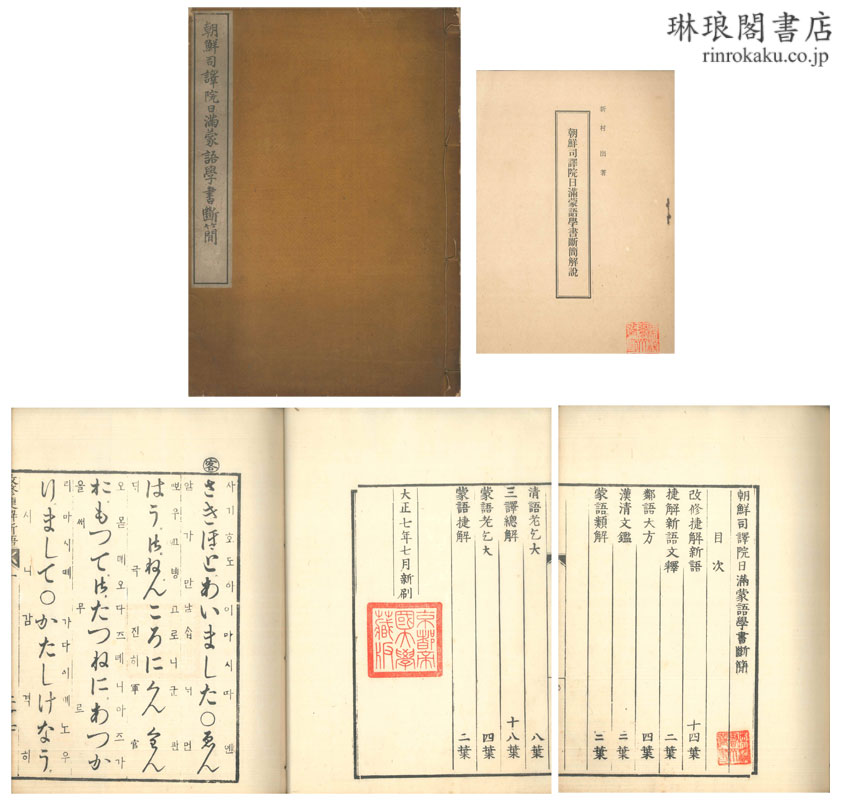 琳琅閣書店
rinrokaku.co.jp
朝鮮司譯院日滿蒙語學書斷簡
新村出著
朝鮮司譯院日滿蒙語學書斷簡解說
朝鮮司譯院日滿蒙語學書斷簡
目次
改修捷解新語 十四葉
捷解新語文釋 二葉
鄰語大方 四葉
漢清文鑑 三葉
蒙語類解 二葉
清語老乞大 八葉
三譯總解 十八葉
蒙語老乞大 四葉
蒙語捷解 二葉
大正七年七月新刷
京都帝國大學藏版
客
사기호도아이마시따 옌
さきほどあいました○ゑん
はう ねんころに
おもつて たつねにあつか
りまして○かたしけなう